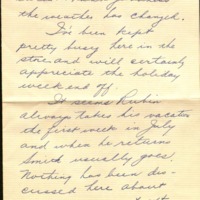 the weather has changed.
I've been kept
pretty busy here in the
store and will certainly
appreciate the holiday
week end off.
It seems Rubin
always takes his vacation
the first week in July
and when he returns
Smith usually goes.
Nothing has been dis-
cussed here about